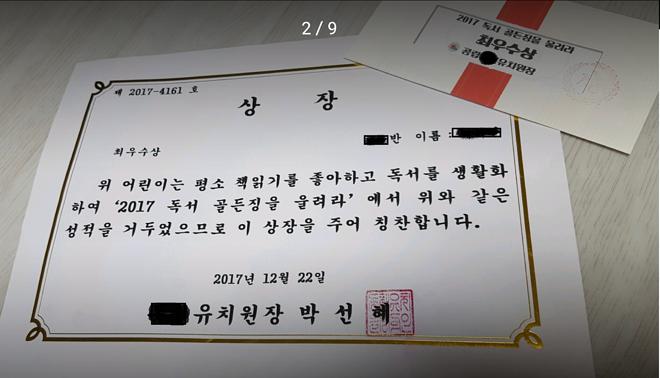 2 / 9
2017 독서 골든징을 울려라
최우수상
공립 유치원장
제 2017-4161 호
상 장
반 이름 :
최우수상
위 어린이는 평소 책읽기를 좋아하고 독서를 생활화
하여 '2017 독서 골든징을 울려라' 에서 위와 같은
성적을 거두었으므로 이 상장을 주어 칭찬합니다.
2017년 12월 22일
유치원장 박 선 혜